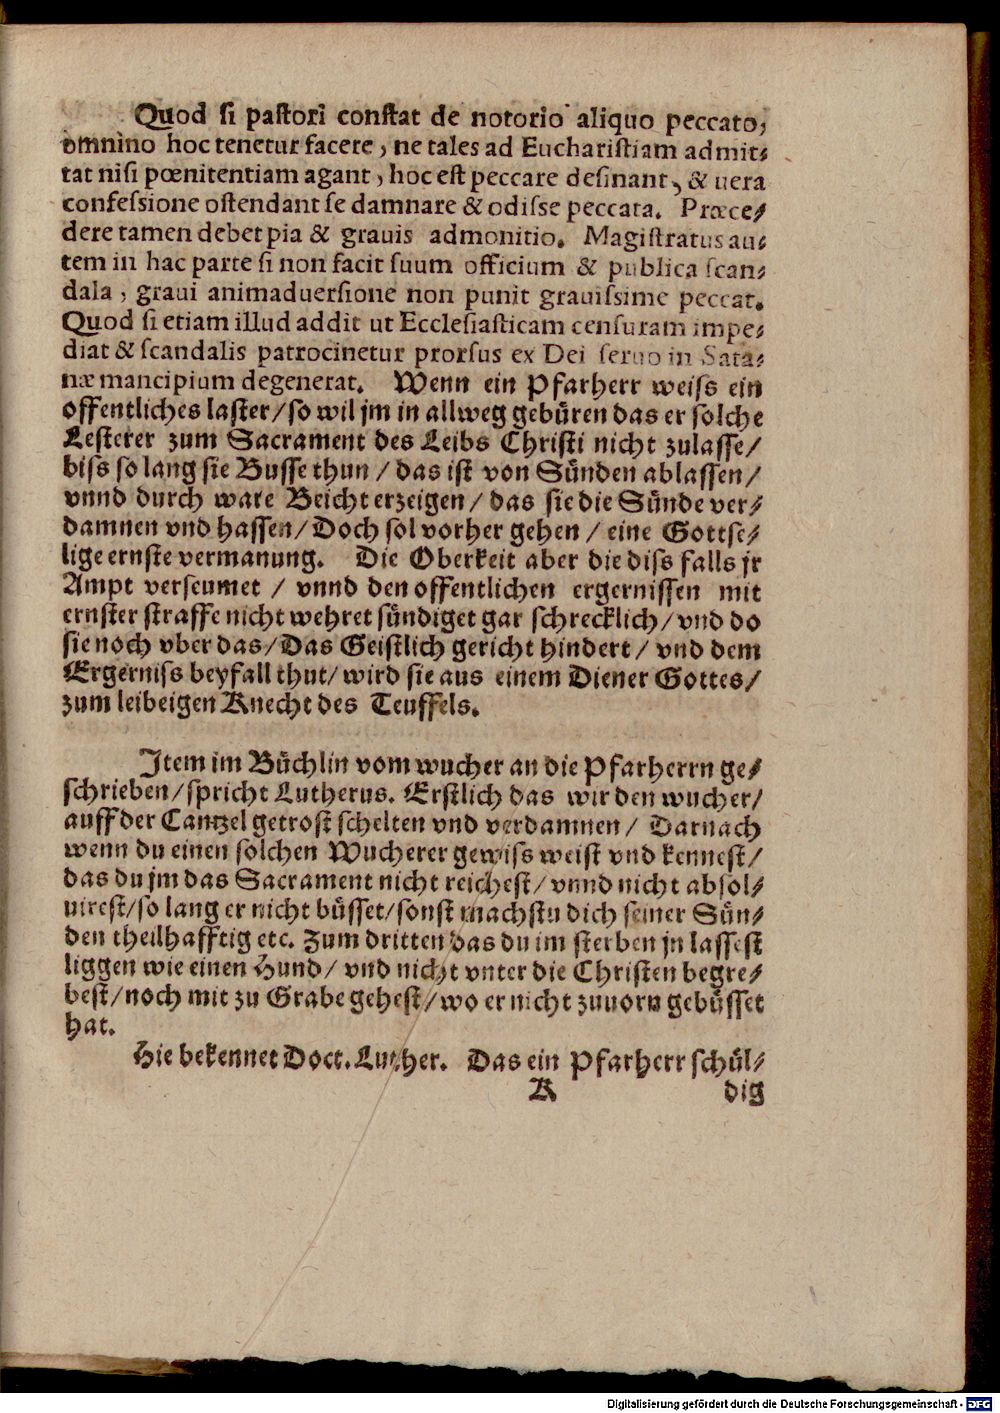 Quod si pastori constat de notorio aliquo peccato,
omnino hoc tenetur facere, ne tales ad Eucharistiam admit-
tat nisi pœnitentiam agant, hoc est peccare desinant, & uera
confessione ostendant se damnare & odisse peccata. Præce-
dere tamen debet pia & grauis admonitio. Magistratus au-
tem in hac parte si non facit suum officium & publica scan-
dala, graui animaduersione non punit grauissime peccat.
Quod si etiam illud addit ut Ecclesiasticam censuram impe-
diat & scandalis patrocinetur prorsus ex Dei seruo in Sata-
næ mancipium degenerat. Wenn ein Pfarherr weiss ein
offentliches laster/so wil jm in allweg gebüren das er solche
Lesterer zum Sacrament des Leibs Christi nicht zulasse/
biss so lang sie Busse thun / das ist von Sünden ablassen/
vnnd durch ware Beicht erzeigen / das sie die Sünde ver-
damnen vnd hassen/Doch sol vorher gehen / eine Gottse-
lige ernste vermanung. Die Oberkeit aber die diss falls jr
Ampt verseumet / vnnd den offentlichen ergernissen mit
ernster straffe nicht wehret sündiget gar schrecklich/vnd do
sie noch vber das/Das Geistlich gericht hindert/ vnd dem
Ergerniss beyfall thut/wird sie aus einem Diener Gottes/
zum leibeigen Knecht des Teuffels.
Item im Büchlin vom wucher an die Pfarherrn ge-
schrieben/spricht Lutherus. Erstlich das wir den wucher/
auff der Cantzel getrost schelten vnd verdamnen/ Darnach
wenn du einen solchen Wucherer gewiss weist vnd kennest/
das du jm das Sacrament nicht reichest/vnnd nicht absol-
uirest/so lang er nicht büsset/sonst machstu dich seiner Sün-
den theilhafftig etc. Zum dritten das du im sterben jn lassest
liggen wie einen Hund/ vnd nicht vnter die Christen begre-
best/noch mit zu Grabe gehest/wo er nicht zuuorn gebüsset
hat.
Hie bekennet Doct. Luther. Das ein Pfarherr schül-
K dig
Digitalisierung gefördert durch die Deutsche Forschungsgemeinschaft - DFG